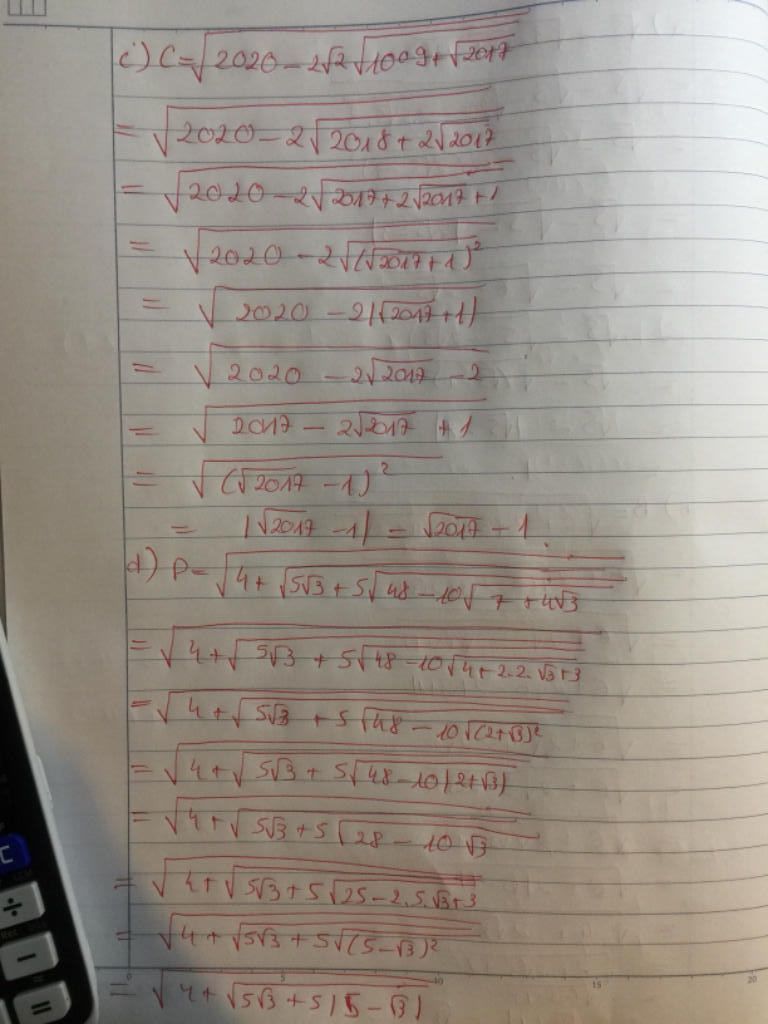 c) C = √(2020 − 2√2 √(1009 + √2017))
= √(2020 − 2√(2018 + 2√2017))
= √(2020 − 2√(2017 + 2√2017 + 1))
= √(2020 − 2√((√2017 + 1)²))
= √(2020 − 2|√2017 + 1|)
= √(2020 − 2√2017 − 2)
= √(2017 − 2√2017 + 1)
= √((√2017 − 1)²)
= |√2017 − 1| = √2017 − 1.
d) P = √(4 + √(5√3 + 5√(48 − 10√(7 + 4√3))))
= √(4 + √(5√3 + 5√(48 − 10√(4 + 2.2.√3 + 3))))
= √(4 + √(5√3 + 5√(48 − 10√((2 + √3)²))))
= √(4 + √(5√3 + 5√(48 − 10|2 + √3|)))
= √(4 + √(5√3 + 5√(28 − 10√3)))
= √(4 + √(5√3 + 5√(25 − 2.5.√3 + 3)))
= √(4 + √(5√3 + 5√((5 − √3)²)))
= √(4 + √(5√3 + 5|5 − √3|))
0 5 10 15 20
C
÷
−
=